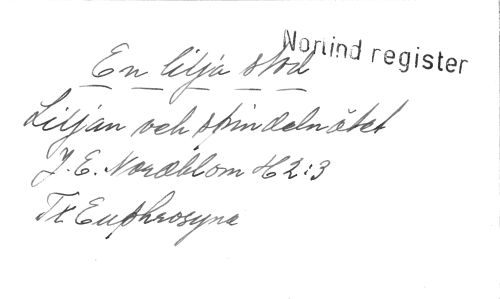 Norlind register
En lilja stod
Liljan och spindelnätet
J. E. Nordblom H 2:3
Tx Euphrosyne